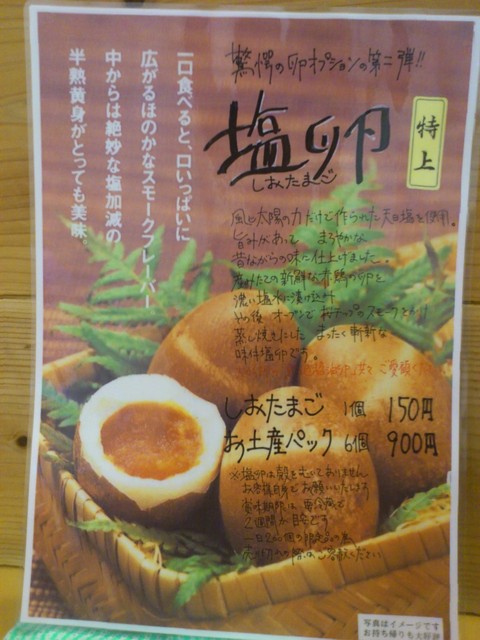 驚愕の卵オプションの第二弾!!
塩卵
しおたまご
特上
一口食べると、口いっぱいに
広がるほのかなスモークフレーバー
中からは絶妙な塩加減の
半熟黄身がとっても美味。
風と太陽の力だけで作られた天日塩を使用。
旨みがあって まろやかな
昔ながらの味に仕上げました。
産みたての新鮮な赤鶏の卵を
濃い塩水に漬け込み
その後、オーブンで チップのスモークをかけ
蒸し焼きにした まったく斬新な
味付塩卵です。
しおたまご 1個 150円
お土産パック 6個 900円
※塩卵は殻をむいてありません
お客様自身でお願いいたします
賞味期限は、冷蔵で
2週間が目安です
写真はイメージです
お持ち帰りも大好評